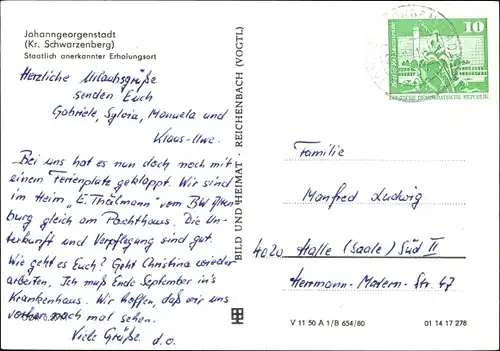 Johanngeorgenstadt
(Kr. Schwarzenberg)
Staatlich anerkannter Erholungsort
Herzliche Urlaubsgrüße
senden Euch
Gabriele, Sylvia, Manuela und
Klaus-Uwe.
Bei uns hat es nun doch noch mit
einem Ferienplatz geklappt. Wir sind
im Heim, E. Thälmann" vom
burg gleich am Pachthaus. Die Un-
terkunft und Verpflegung sind gut.
Wie geht es Euch? Geht Christina wieder
arbeiten. Ich muß Ende September ins
Krankenhaus. Wir hoffen, daß wir uns
vorher noch mal sehen.
Viele Grüße. d.o.
BILD UND HEIMAT · REICHENBACH (VOGTL)
10
DEUTSCHE DEMOKRATISCHE REPUBLIK
Familie
Manfred Ludwig
4020 Halle (Saale) Süd II
Herrmann-Matern-Str. 47
V 11 50 A 1/B 654/80
01 14 17 278